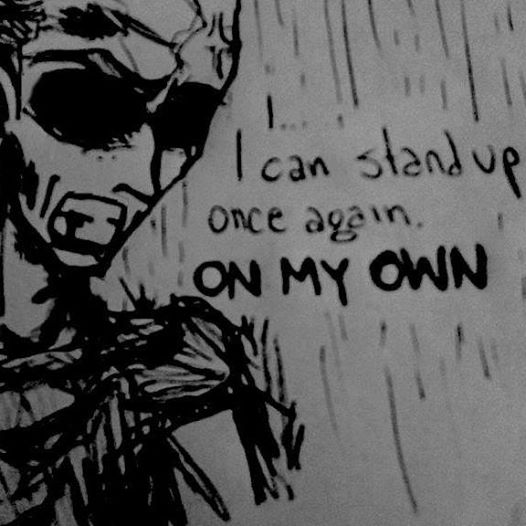 I...
I can stand up
once again.
ON MY OWN